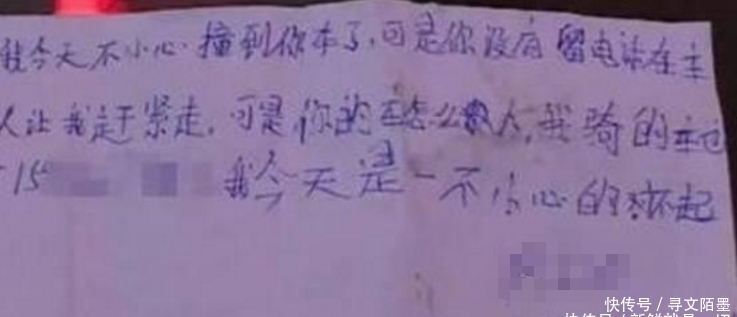 我今天不小心撞到你车了,可是你没有留电话在车
人让我赶紧走,可是你的车怎么大,我骑的车也
15 我今天是一不小心的对不起
快传号/寻文陌墨